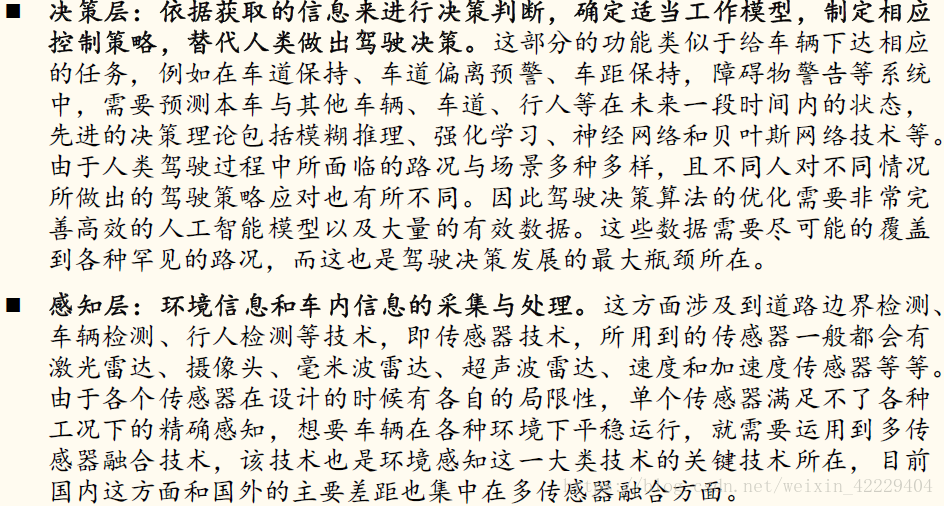 ■ 决策层：依据获取的信息来进行决策判断，确定适当工作模型，制定相应
控制策略，替代人类做出驾驶决策。这部分的功能类似于给车辆下达相应
的任务，例如在车道保持、车道偏离预警、车距保持，障碍物警告等系统
中，需要预测本车与其他车辆、车道、行人等在未来一段时间内的状态，
先进的决策理论包括模糊推理、强化学习、神经网络和贝叶斯网络技术等。
由于人类驾驶过程中所面临的路况与场景多种多样，且不同人对不同情况
所做出的驾驶策略应对也有所不同。因此驾驶决策算法的优化需要非常完
善高效的人工智能模型以及大量的有效数据。这些数据需要尽可能的覆盖
到各种罕见的路况，而这也是驾驶决策发展的最大瓶颈所在。
■ 感知层：环境信息和车内信息的采集与处理。这方面涉及到道路边界检测、
车辆检测、行人检测等技术，即传感器技术，所用到的传感器一般都会有
激光雷达、摄像头、毫米波雷达、超声波雷达、速度和加速度传感器等等。
由于各个传感器在设计的时候有各自的局限性，单个传感器满足不了各种
工况下的精确感知，想要车辆在各种环境下平稳运行，就需要运用到多传
感器融合技术，该技术也是环境感知这一大类技术的关键技术所在，目前
国内这方面和国外的主要差距也集中在多传感器融合方面。
https://blog.csdn.net/weixin_42229404